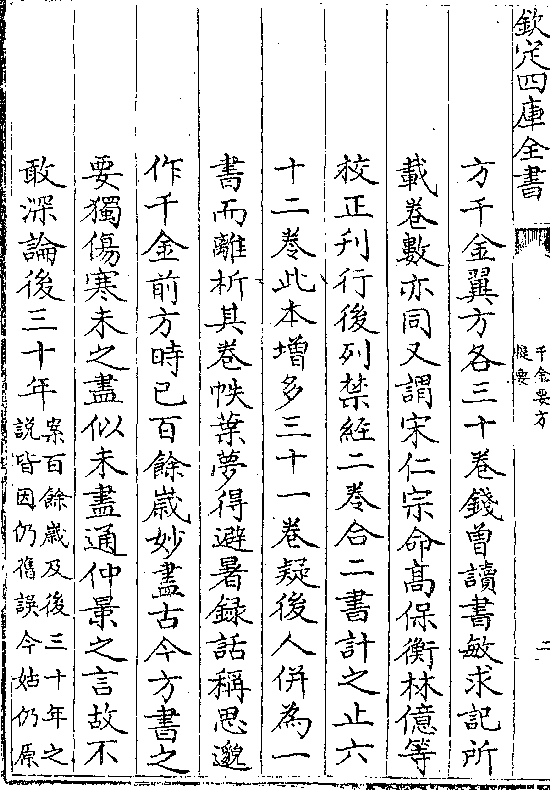 欽定四庫全書
千金要方
提要
二
方千金翼方各三十卷錢曽讀書敏求記所
載卷數亦同又謂宋仁宗命髙保衡林億等
校正刋行後列禁經二卷合二書計之止六
十二卷此本增多三十一卷疑後人併為一
書而離析其卷帙葉夢得避暑録話稱思邈
作千金前方時已百餘嵗妙盡古今方書之
要獨傷寒未之盡似未盡通仲景之言故不
敢深論後三十年
案百餘嵗及後三十年之
説皆因仍舊誤今姑仍原